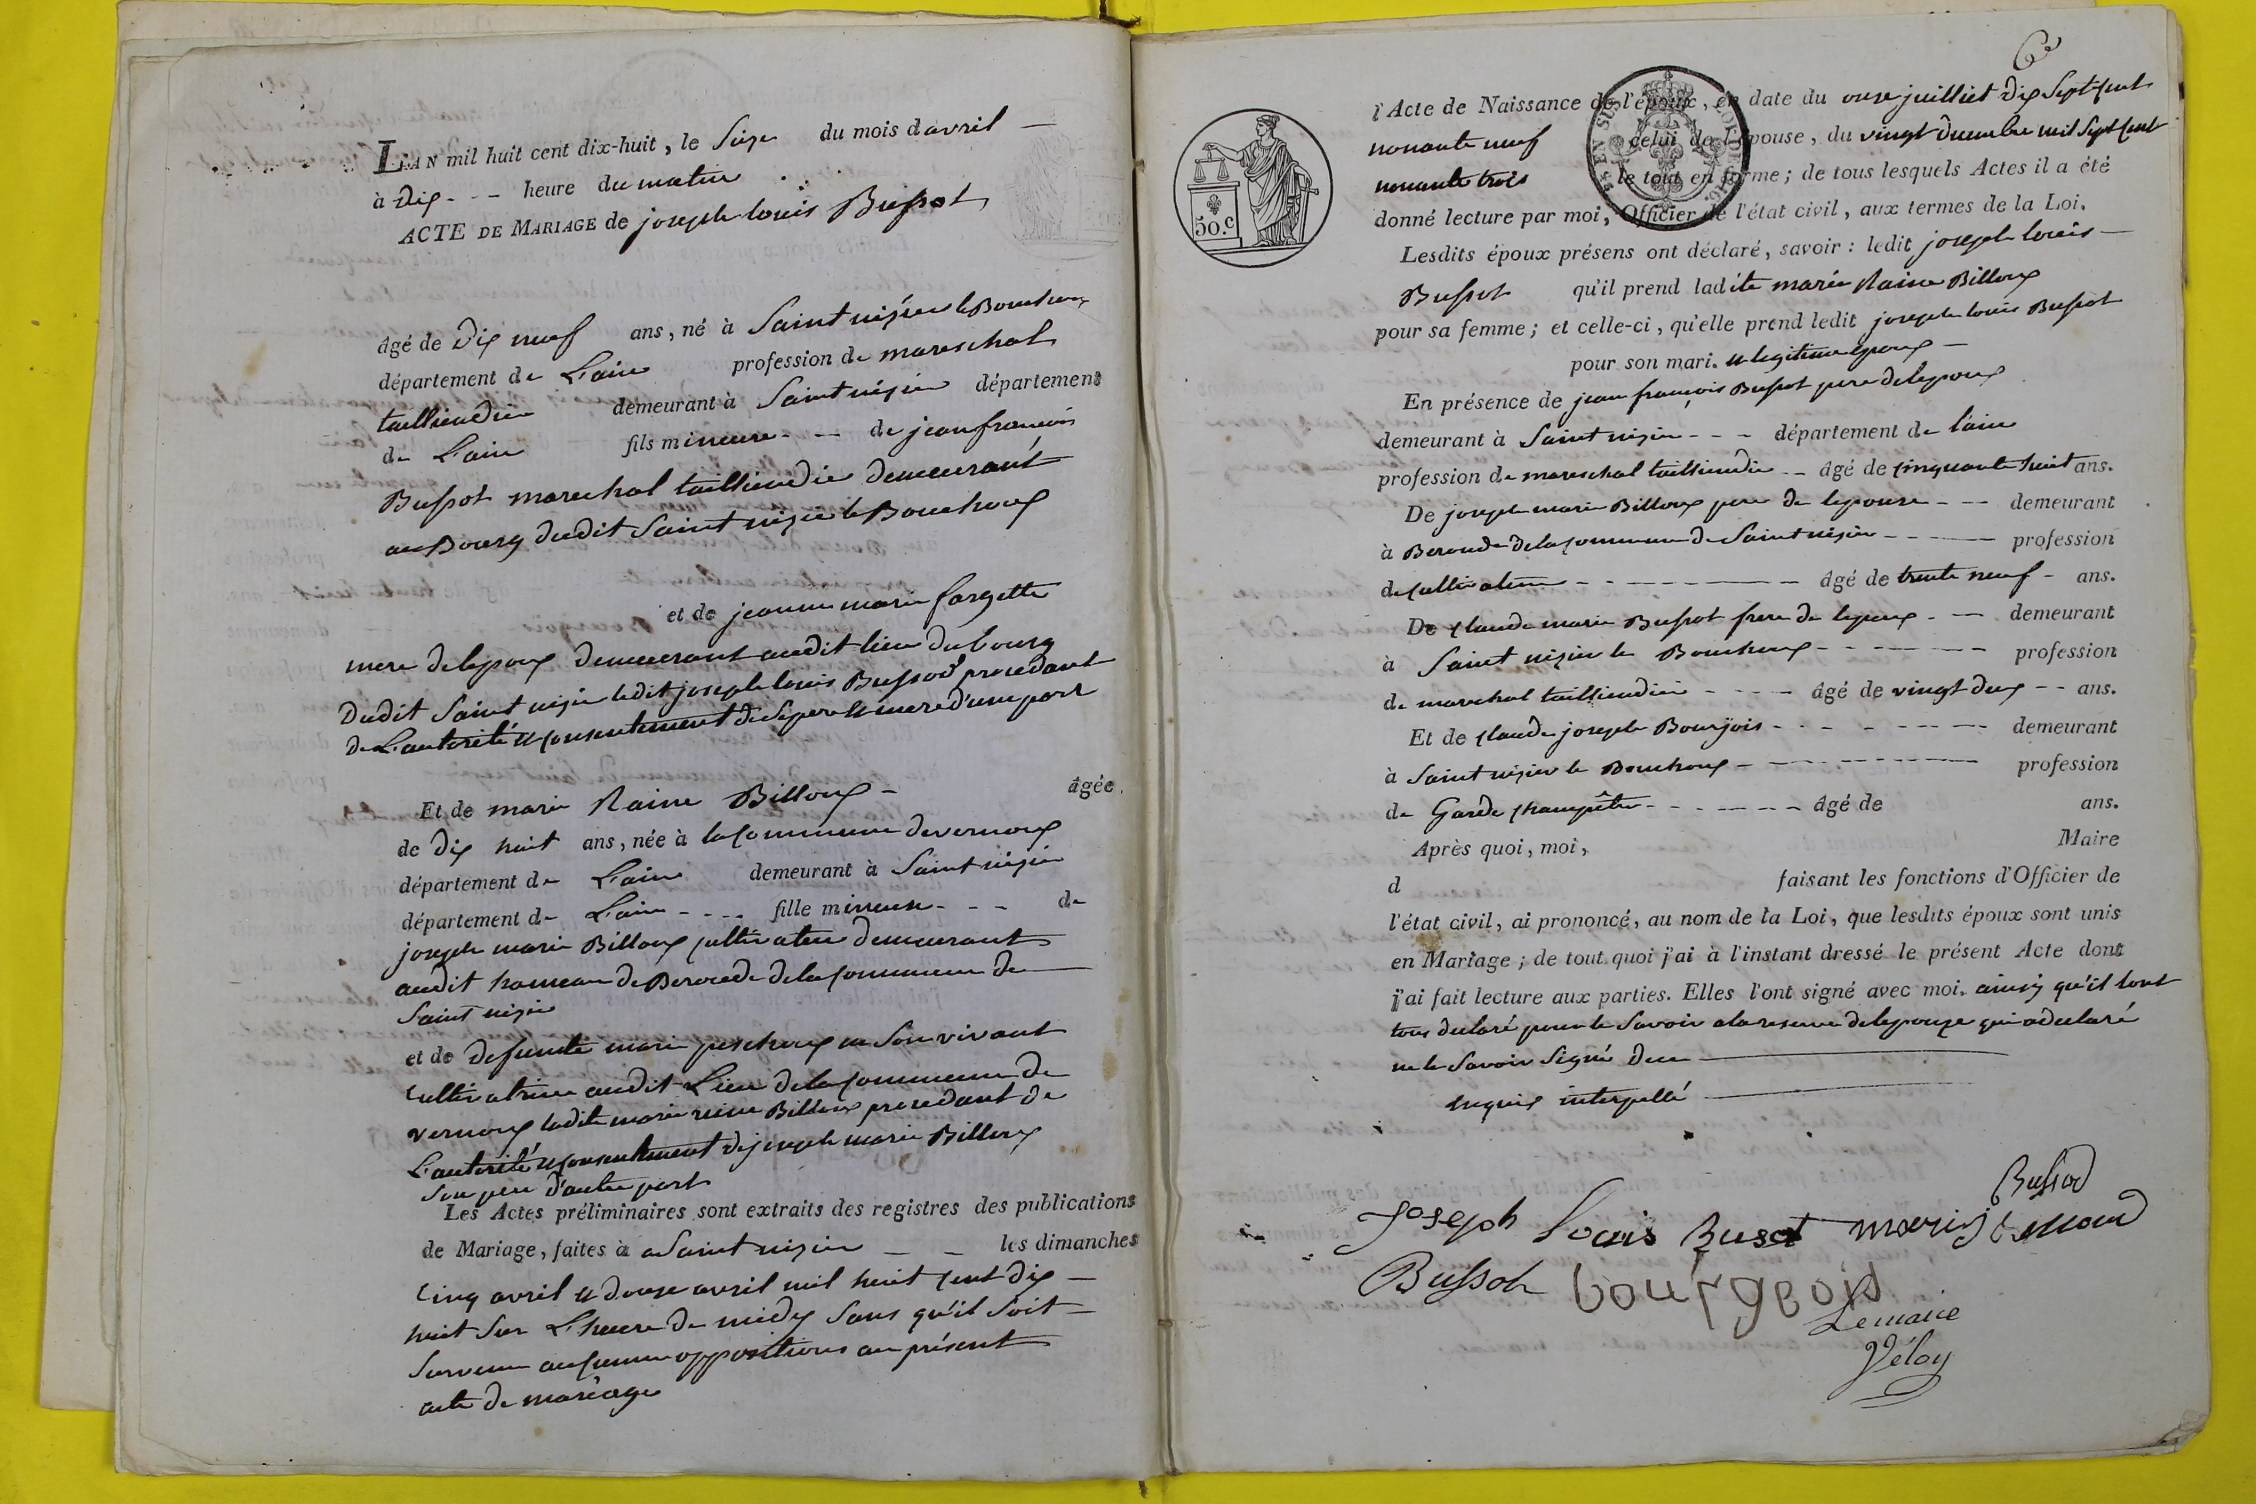 L'AN mil huit cent dix-huit, le Seize du mois d'avril
à Dix heure du matin
ACTE DE MARIAGE de joseph louis Bussot
âgé de Dix neuf ans, né à Saint nizier le Bouchoux
département de L'ain profession de mareschal
taillendier demeurant à Saint nizier département
de L'ain fils mineure de jean francois
Bussot marechal taillendier demeurant
au Bourg dudit Saint nizier le Bouchoux
et de jeanne marie fargette
mere de lepoux demeurant audit lieu du bourg
dudit Saint nizier ledit joseph louis Bussod procedant
de L'autorité et consentement de Se pere et mere d'une part
Et de marie Raine Billoux âgée
de Dix huit ans, née à la commune de vernoux
département de L'ain demeurant à Saint nizier
département de L'ain fille mineure de
joseph marie Billoux cultivateur demeurant
audit hameau de Beroude de la commune de
Saint nizier
et de Defunte marie pescheux en Son vivant
cultivatrice audit Lieu de la commune de
vernoux ladite marie reine Billoux procedant de
L'autorité et consentement de joseph marie Billoux
Son pere d'autre part
Les Actes préliminaires sont extraits des registres des publications
de Mariage, faites à a Saint nizier les dimanches
Cinq avril et douze avril mil huit cent dix
huit Sur L'heure de midy Sans qu'il Soit
Survenu aucunne oppositions au présent
acte de mariage
6e
l'Acte de Naissance de l'époux, en date du onze juilliet dix Sept cent
nonante neuf celui de l'épouse, du vingt decembre mil Sept cent
nonante trois le tout en forme; de tous lesquels Actes il a été
donné lecture par moi, Officier de l'état civil, aux termes de la Loi.
50.c
Lesdits époux présens ont déclaré, savoir: ledit joseph louis
Bussot qu'il prend ladite marie Raine Billoux
pour sa femme; et celle-ci, qu'elle prend ledit joseph louis Bussot
pour son mari. et legitime epoux
En présence de jean françois Bussot pere de lepoux
demeurant à Saint nizier département de l'ain
profession de mareschal taillendier âgé de cinquante huit ans.
De joseph marie Billoux pere de lepouse demeurant
à Beroude de la commune de Saint nizier profession
de cultivateur âgé de trente neuf ans.
De Claude marie Bussot frere de lepoux demeurant
à Saint nizier le Bouchoux profession
de marechal taillendier âgé de vingt deux ans.
Et de Claude joseph Bourjois demeurant
à Saint nizier le Bouchoux profession
de Garde champêtre âgé de ans.
Après quoi, moi, Maire
d faisant les fonctions d'Officier de
l'état civil, ai prononcé, au nom de la Loi, que lesdits époux sont unis
en Mariage; de tout quoi j'ai à l'instant dressé le présent Acte dont
j'ai fait lecture aux parties. Elles l'ont signé avec moi. ainsy qu'il lont
tous declaré pour le Savoir a la reserve de lepouze qui a declaré
ne le Savoir Signé de ce
enquis interpellé
Bussod
Joseph Louis Busot
Bussot bourgeois
Le maire
Véloy